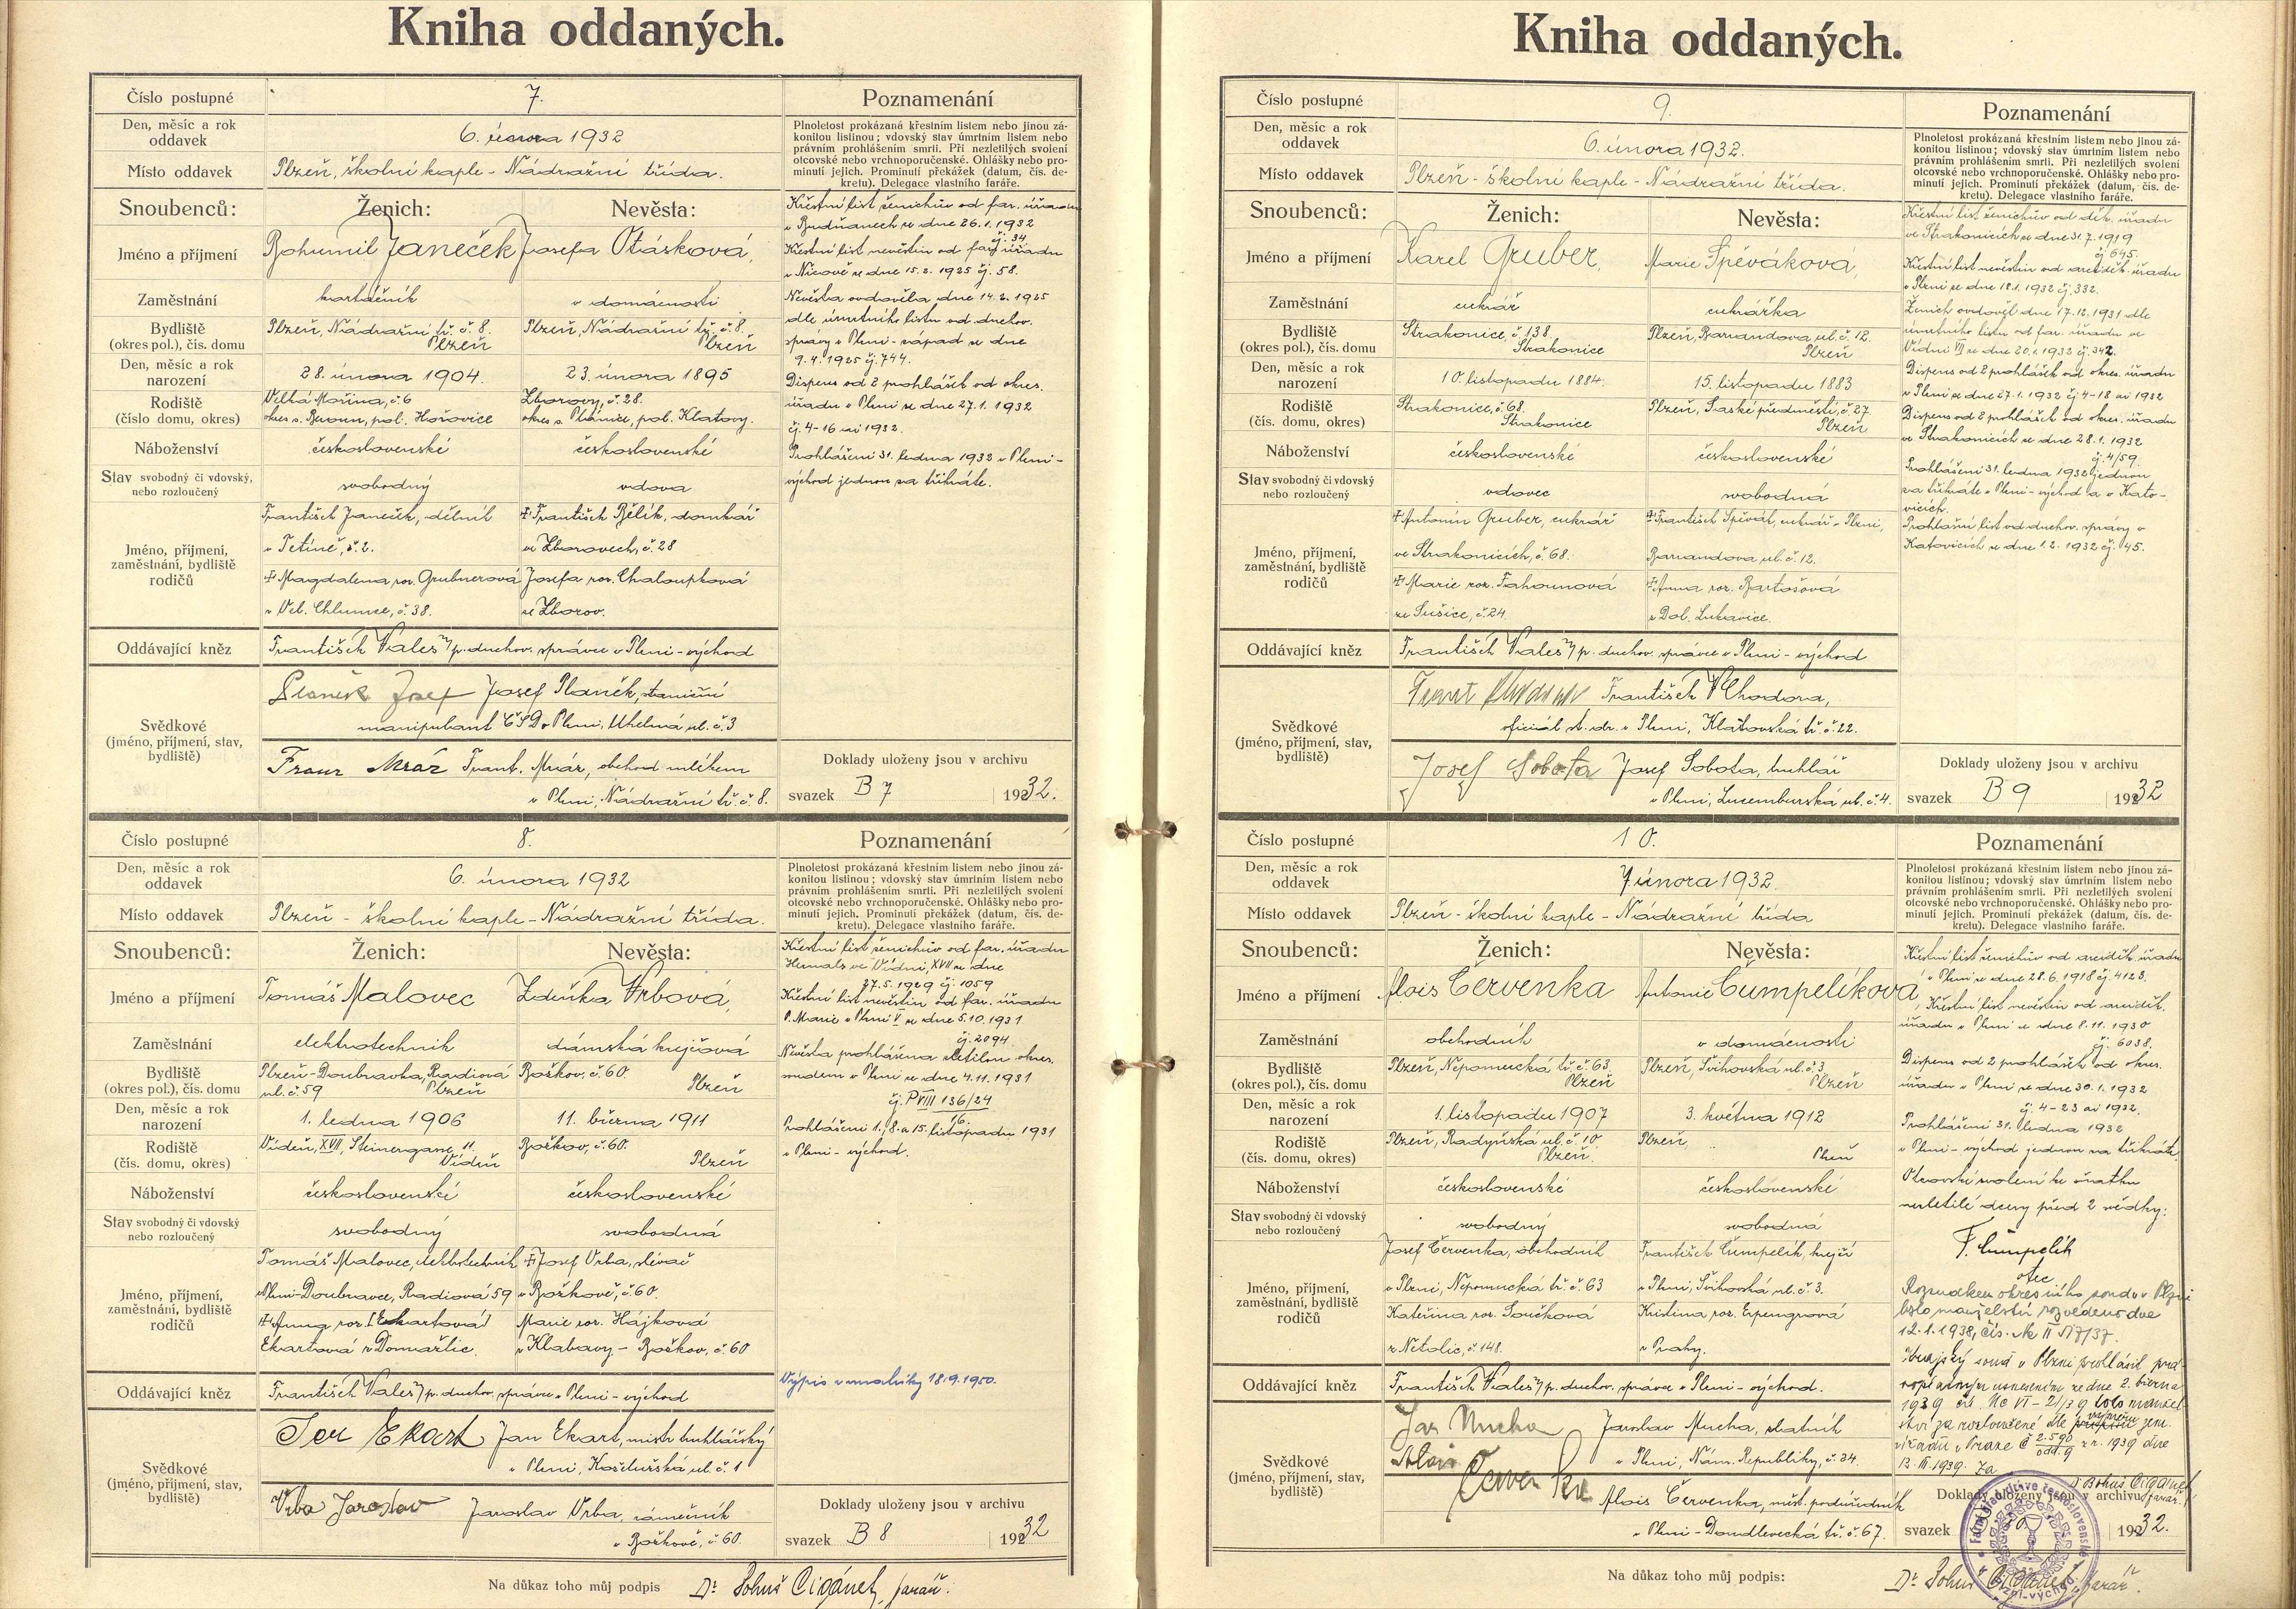 Kniha oddaných.
Číslo postupné
7.
Poznamenání
Den, měsíc a rok
oddavek
6. února 1932
Plnoletost prokázaná křestním listem nebo jinou zá-
konitou listinou; vdovský stav úmrtním listem nebo
právním prohlášením smrti. Při nezletilých svolení
otcovské nebo vrchnoporučenské. Ohlášky nebo pro-
minutí jejich. Prominutí překážek (datum, čís. de-
kretu). Delegace vlastního faráře.
Místo oddavek
Plzeň, školní kaple - Nádražní třída.
Snoubenců:
Ženich:
Nevěsta:
Jméno a příjmení
Bohumil Janeček
Josefa Otásková,
Zaměstnání
kartáčník
v domácnosti
Bydliště
(okres pol.), čís. domu
Plzeň, Nádražní tř. č. 8.
Plzeň
Plzeň, Nádražní tř. č. 8.
Plzeň
Den, měsíc a rok
narození
28. února 1904.
23. února 1895
Rodiště
(číslo domu, okres)
Velká Mořina, č. 6
okres s. Beroun, pol. Hořovice
Zborovy, č. 28.
okres s. Plánice, pol. Klatovy.
Náboženství
československé
československé
Stav svobodný či vdovský,
nebo rozloučený
svobodný
vdova
Jméno, příjmení,
zaměstnání, bydliště
rodičů
František Janeček, dělník
v Tetíně, č. 2.
‡ Magdalena roz. Grubnerová
z Vel. Chlumce, č. 38.
‡ František Bělík, domkář
ve Zborovech, č. 28
Josefa roz. Chaloupková
ze Zborov.
Křestní list ženichův od far. úřadu
v Budňanech ze dne 26. 1. 1932
čj. 34
Křestní list nevěstin od far. úřadu
v Nicově ze dne 15. 2. 1925 čj. 58.
Nevěsta ovdověla dne 14. 2. 1925
dle úmrtního listu od duchov.
správy v Plzni - západ ze dne
9. 4. 1925 čj. 744.
Dispens od 2 prohlášek od okres.
úřadu v Plzni ze dne 27. 1. 1932
čj. 4-16 ai 1932.
Prohlášeni 31. ledna 1932 v Plzni -
východ jednou za třikráte.
Oddávající kněz
František Valeš v/r p. duchov. správce v Plzni - východ
Svědkové
(jméno, příjmení, stav,
bydliště)
Planěk Josef Josef Planěk, staniční
manipulant ČSD v Plzni, Uhelná ul. č. 3
Franz Mráz Frant. Mráz, obchod mlékem
v Plzni, Nádražní tř. č. 8.
Doklady uloženy jsou v archivu
svazek B 7 1932.
Číslo postupné
8.
Poznamenání
Den, měsíc a rok
oddavek
6. února 1932
Plnoletost prokázaná křestním listem nebo jinou zá-
konitou listinou; vdovský stav úmrtním listem nebo
právním prohlášením smrti. Při nezletilých svolení
otcovské nebo vrchnoporučenské. Ohlášky nebo pro-
minutí jejich. Prominutí překážek (datum, čís. de-
kretu). Delegace vlastního faráře.
Místo oddavek
Plzeň - školní kaple - Nádražní třída.
Snoubenců:
Ženich:
Nevěsta:
Jméno a příjmení
Tomáš Malovec
Zdeňka Vrbová,
Zaměstnání
elektrotechnik
dámská krejčová
Bydliště
(okres pol.), čís. domu
Plzeň-Doubravka, Radiová
ul. č. 59 Plzeň
Božkov, č. 60.
Plzeň
Den, měsíc a rok
narození
1. ledna 1906
11. března 1911
Rodiště
(čís. domu, okres)
Vídeň, XVII, Steinergasse 11
Vídeň
Božkov, č. 60.
Plzeň
Náboženství
československé
československé
Stav svobodný či vdovský
nebo rozloučený
svobodný
svobodná
Jméno, příjmení,
zaměstnání, bydliště
rodičů
Tomáš Malovec, elektrotechnik
Plzni-Doubravce, Radiová 59
‡ Anna roz. [Ekartová]
Ekartová z Domažlic.
‡ Josef Vrba, slévač
v Božkově, č. 60.
Marie roz. Hájková
z Klabavy - Božkov, č. 60
Křestní list ženichův od far. úřadu
Hernals ve Vídni, XVII ze dne
27. 5. 1929 čj. 1059
Křestní list nevěstin od far. úřadu
P. Marie v Plzni V ze dne 5. 10. 1931
čj. 2094
Nevěsta prohlášena zletilou okres.
soudem v Plzni ze dne 4. 11. 1931
čj. P VIII 136/24
16.
Prohlášeni 1., 8. a 15. listopadu 1931
v Plzni - východ.
Výpis z matriky 18.9.1950.
Oddávající kněz
František Valeš v/r p. duchov. správce v Plzni - východ
Svědkové
(jméno, příjmení, stav,
bydliště)
Jan Ekart Jan Ekart, mistr truhlářský
v Plzni, Koželužská ul. č. 1
Vrba Jaroslav Jaroslav Vrba, zámečník
v Božkově, č. 60.
Doklady uloženy jsou v archivu
svazek B 8 1932
Na důkaz toho můj podpis Dr Bohuš Cigánek, farář.
Kniha oddaných.
Číslo postupné
9.
Poznamenání
Den, měsíc a rok
oddavek
6. února 1932.
Plnoletost prokázaná křestním listem nebo jinou zá-
konitou listinou; vdovský stav úmrtním listem nebo
právním prohlášením smrti. Při nezletilých svolení
otcovské nebo vrchnoporučenské. Ohlášky nebo pro-
minutí jejich. Prominutí překážek (datum, čís. de-
kretu). Delegace vlastního faráře.
Místo oddavek
Plzeň - školní kaple - Nádražní třída.
Snoubenců:
Ženich:
Nevěsta:
Jméno a příjmení
Karel Gruber,
Marie Spěváková,
Zaměstnání
cukrář
cukrářka
Bydliště
(okres pol.), čís. domu
Strakonice, č. 138.
Strakonice
Plzeň, Barrandova ul. č. 12.
Plzeň
Den, měsíc a rok
narození
10. listopadu 1884.
15. listopadu 1883
Rodiště
(čís. domu, okres)
Strakonice, č. 68.
Strakonice
Plzeň, Saské předměstí, č. 27.
Plzeň
Náboženství
československé
československé
Stav svobodný či vdovský
nebo rozloučený
vdovec
svobodná
Jméno, příjmení,
zaměstnání, bydliště
rodičů
‡ Antonín Gruber, cukrář
ve Strakonicích, č. 68.
‡ Marie roz. Fahounová
ze Sušice, č. 24.
‡ František Spěvák, cukrář - Plzni,
Barrandova ul. č. 12.
‡ Anna roz. Bartošová
z Dol. Lukavice.
Křestní list ženichův od děk. úřadu
ve Strakonicích ze dne 31. 7. 1919
čj 645.
Křestní list nevěstin od arciděk. úřadu
v Plzni ze dne 18. 1. 1932 čj. 332.
Ženich ovdověl dne 17. 12. 1931 dle
úmrtního listu od far. úřadu ve
Vídni VII ze dne 20. 1. 1932 čj. 342.
Dispens od 2 prohlášek od okres. úřadu
v Plzni ze dne 27. 1. 1932 čj. 4-18 ai 1932
Dispens od 2 prohlášek od okres. úřadu
ve Strakonicích ze dne 28. 1. 1932
čj. 4/59.
Prohlášeni 31. ledna 1932 jednou
za třikráte v Plzni - východ a v Kato-
vicích.
Prohlašní list od duchov. správy v
Katovicích ze dne 1. 2. 1932 čj. 45.
Oddávající kněz
František Valeš v/r p. duchov. správce v Plzni - východ
Svědkové
(jméno, příjmení, stav,
bydliště)
František Chodora,
oficiál st. dr. v Plzni, Klatovská tř. č. 22.
Josef Sobota Josef Sobota, truhlář
v Plzni, Lucemburská ul. č. 4.
Doklady uloženy jsou v archivu
svazek B 9 1932
Číslo postupné
10.
Poznamenání
Den, měsíc a rok
oddavek
7. února 1932.
Plnoletost prokázaná křestním listem nebo jinou zá-
konitou listinou; vdovský stav úmrtním listem nebo
právním prohlášením smrti. Při nezletilých svolení
otcovské nebo vrchnoporučenské. Ohlášky nebo pro-
minutí jejich. Prominutí překážek (datum, čís. de-
kretu). Delegace vlastního faráře.
Místo oddavek
Plzeň - školní kaple - Nádražní třída
Snoubenců:
Ženich:
Nevěsta:
Jméno a příjmení
Alois Červenka
Antonie Čumpelíková,
Zaměstnání
obchodník
v domácnosti
Bydliště
(okres pol.), čís. domu
Plzeň, Nepomucká tř. č. 63
Plzeň
Plzeň, Švihovská ul. č. 3
Plzeň
Den, měsíc a rok
narození
1. listopadu 1907
3. května 1912
Rodiště
(čís. domu, okres)
Plzeň, Radyňská ul. č. 10.
Plzeň.
Plzeň,
Plzeň
Náboženství
československé
československé
Stav svobodný či vdovský
nebo rozloučený
svobodný
svobodná
Jméno, příjmení,
zaměstnání, bydliště
rodičů
Josef Červenka, obchodník
v Plzni, Nepomucká tř. č. 63
Kateřina roz. Součková
z Netolic, č. 148.
František Čumpelík, krejčí
v Plzni, Švihovská ul. č. 3.
Kristina roz.
z Prahy.
Křestní list ženichův od arciděk. úřadu
v Plzni ze dne 28. 6. 1918 čj. 4123.
Křestní list nevěstin od arciděk.
úřadu v Plzni ze dne 8. 11. 1930
čj. 6038.
Dispens od 2 prohlášek od okres.
úřadu v Plzni ze dne 30. 1. 1932
čj. 4-23 ai 1932.
Prohlášeni 31. ledna 1932
v Plzni - východ jednou za třikráte.
Otcovské svolení ke sňatku
nezletilé dcery před 2 svědky:
F. Čumpelík
otec
Rozsudkem okresního soudu v Plzni
bylo manželství rozvedeno dne
12. 1. 1938, čís. Nc II 517/37.
Krajský soud v Plzni prohlásil pred-
usnesením ze dne 2. března
1939 čís. Nc VI - 21/39 toto manžel-
ství za rozloučené dle zem.
úřadu v Praze č. z r. 1939 dne
13. III. 1939. Za
Dr Bohuš Cigánek
farář.
Oddávající kněz
František Valeš v/r p. duchov. správce v Plzni - východ.
Svědkové
(jméno, příjmení, stav,
bydliště)
Jar Mucha Jaroslav Mucha, statník
v Plzni, Nám. Republiky, č. 34.
Alois Červenka Alois Červenka, měst. podúředník
v Plzni - Doudlevecká tř. č. 67.
Doklady uloženy jsou v archivu
svazek 1932.
Na důkaz toho můj podpis: Dr Bohuš Cigánek, farář.